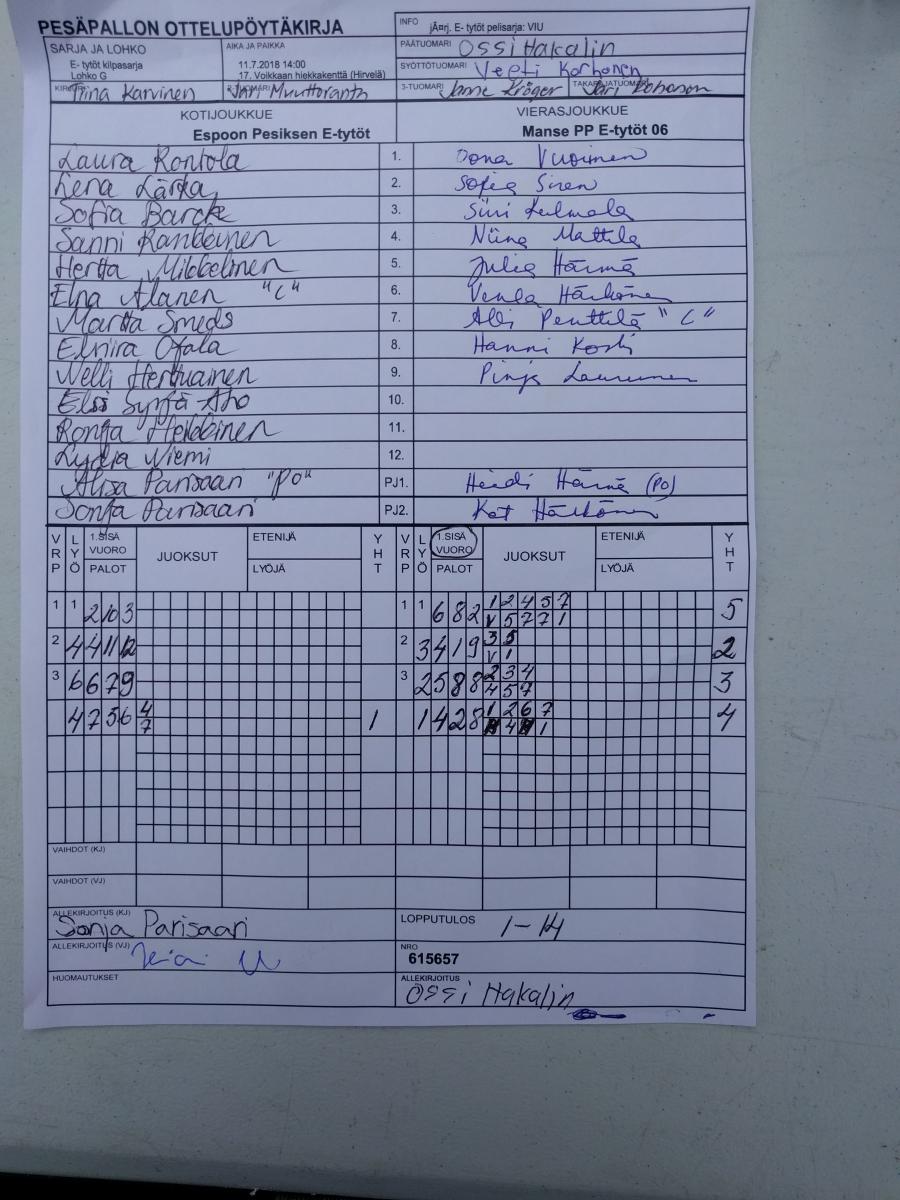 PESÄPALLON OTTELUPÖYTÄKIRJA
INFO jÃ¤rj. E- tytöt pelisarja: VIU
SARJA JA LOHKO
E- tytöt kilpasarja
Lohko G
AIKA JA PAIKKA
11.7.2018 14:00
17. Voikkaan hiekkakenttä (Hirvelä)
PÄÄTUOMARI Ossi Hakalin
SYÖTTÖTUOMARI Veeti Korhonen
KIRJURI Tiina Karvinen
2-TUOMARI Jari Muuttoranta
3-TUOMARI Janne Kröger
TAKARAJATUOMARI Jari
KOTIJOUKKUE
Espoon Pesiksen E-tytöt
VIERASJOUKKUE
Manse PP E-tytöt 06
Laura Rontola 1. Oona Vuorinen
Lena Lärka 2. Sofia Siren
Sofia Barck 3. Siiri Kulmala
Sanni Rantkainen 4. Niina Mattila
Hertta Mikkelinen 5. Julia Härmä
Elna Alanen "C" 6. Venla Härkönen
Martta Smeds 7. Alli Penttilä "C"
Elviira Ojala 8. Hanni Koski
Nelli 9. Pinja
Elsi Syrjä-Aho 10.
Ronja Heikkinen 11.
Lydia Niemi 12.
Alisa Parisaari "PO" PJ1. Heidi Härmä (PO)
Sonja Parisaari PJ2. Kat Härkönen
VRP LYÖ 1.SISÄ VUORO PALOT JUOKSUT ETENIJÄ LYÖJÄ YHT VRP LYÖ 1.SISÄ VUORO PALOT JUOKSUT ETENIJÄ LYÖJÄ YHT
1 1 2 10 3 1 1 6 8 2 1 2 4 5 7 5
V 5 7 7 1
2 4 4 11 12 2 3 4 1 9 3 5 2
V 1
3 6 6 7 9 3 2 5 8 8 2 3 4 3
4 5 7
4 7 5 6 4 1 1 4 2 8 1 2 6 7 4
7 4 1
VAIHDOT (KJ)
VAIHDOT (VJ)
ALLEKIRJOITUS (KJ) Sonja Parisaari
LOPPUTULOS 1-14
ALLEKIRJOITUS (VJ)
NRO 615657
HUOMAUTUKSET
ALLEKIRJOITUS Ossi Hakalin